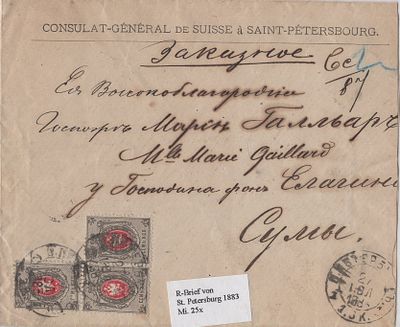 CONSULAT-GÉNÉRAL DE SUISSE à SAINT-PÉTERSBOURG.
Заказное
87
Ея Высокоблагородію
Госпожѣ Маріи Галльяръ
Mlle Marie Gaillard
у Господина фонъ Елагинъ
Сумы.
R-Brief von
St. Petersburg 1883
Mi. 25x